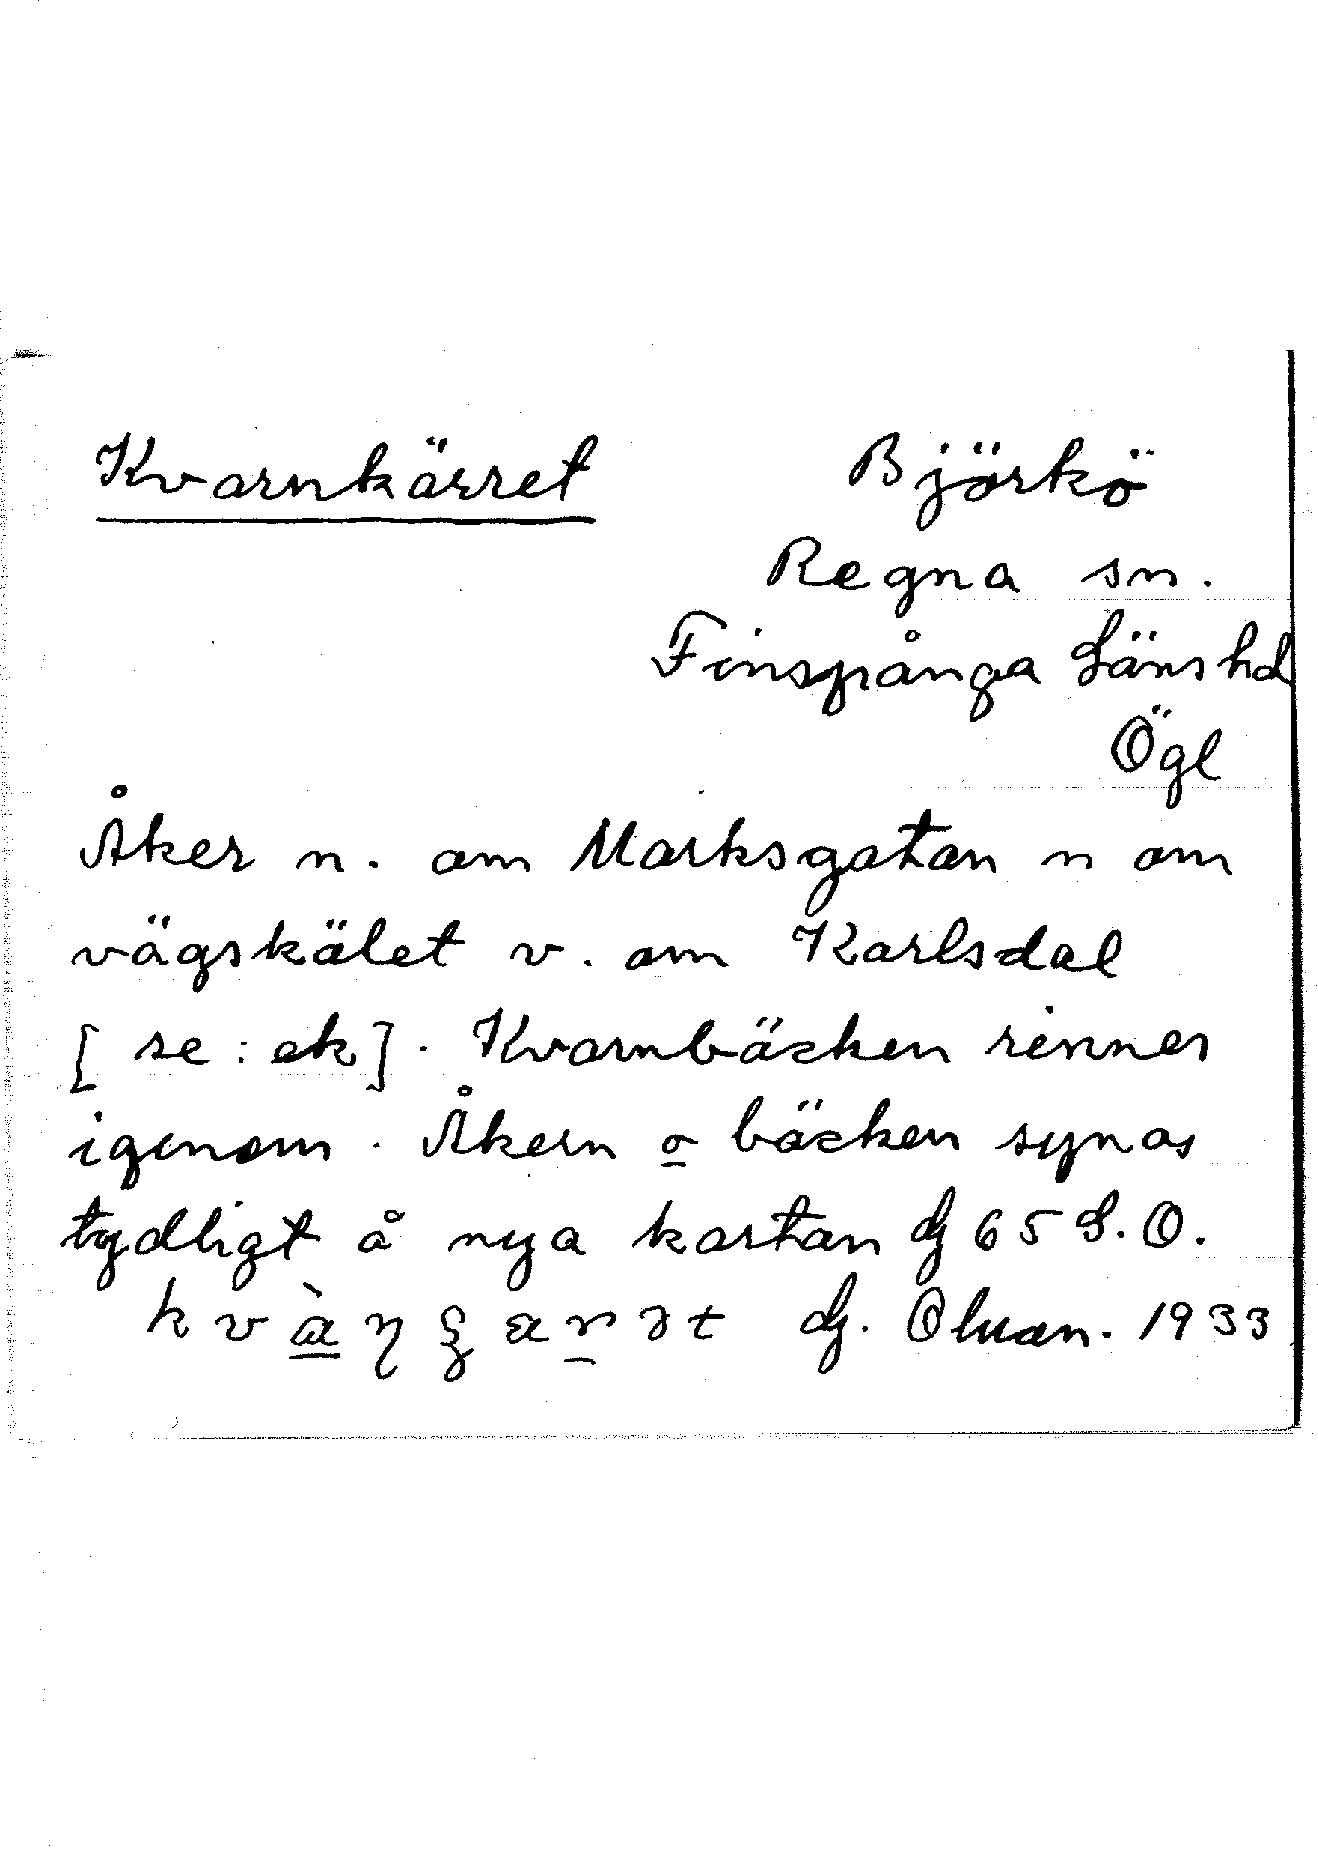 Kvarnkärret Björkö
Regna sn.
Finspånga Läns hd
Ögl
Åker n. om Marksgatan n om
vägskälet v. om Karlsdal
[se: ek]. Kvarnbäcken rinner
igenom. Åkern o bäcken synas
tydligt å nya kartan dj 65 S.O.
dj. 1933